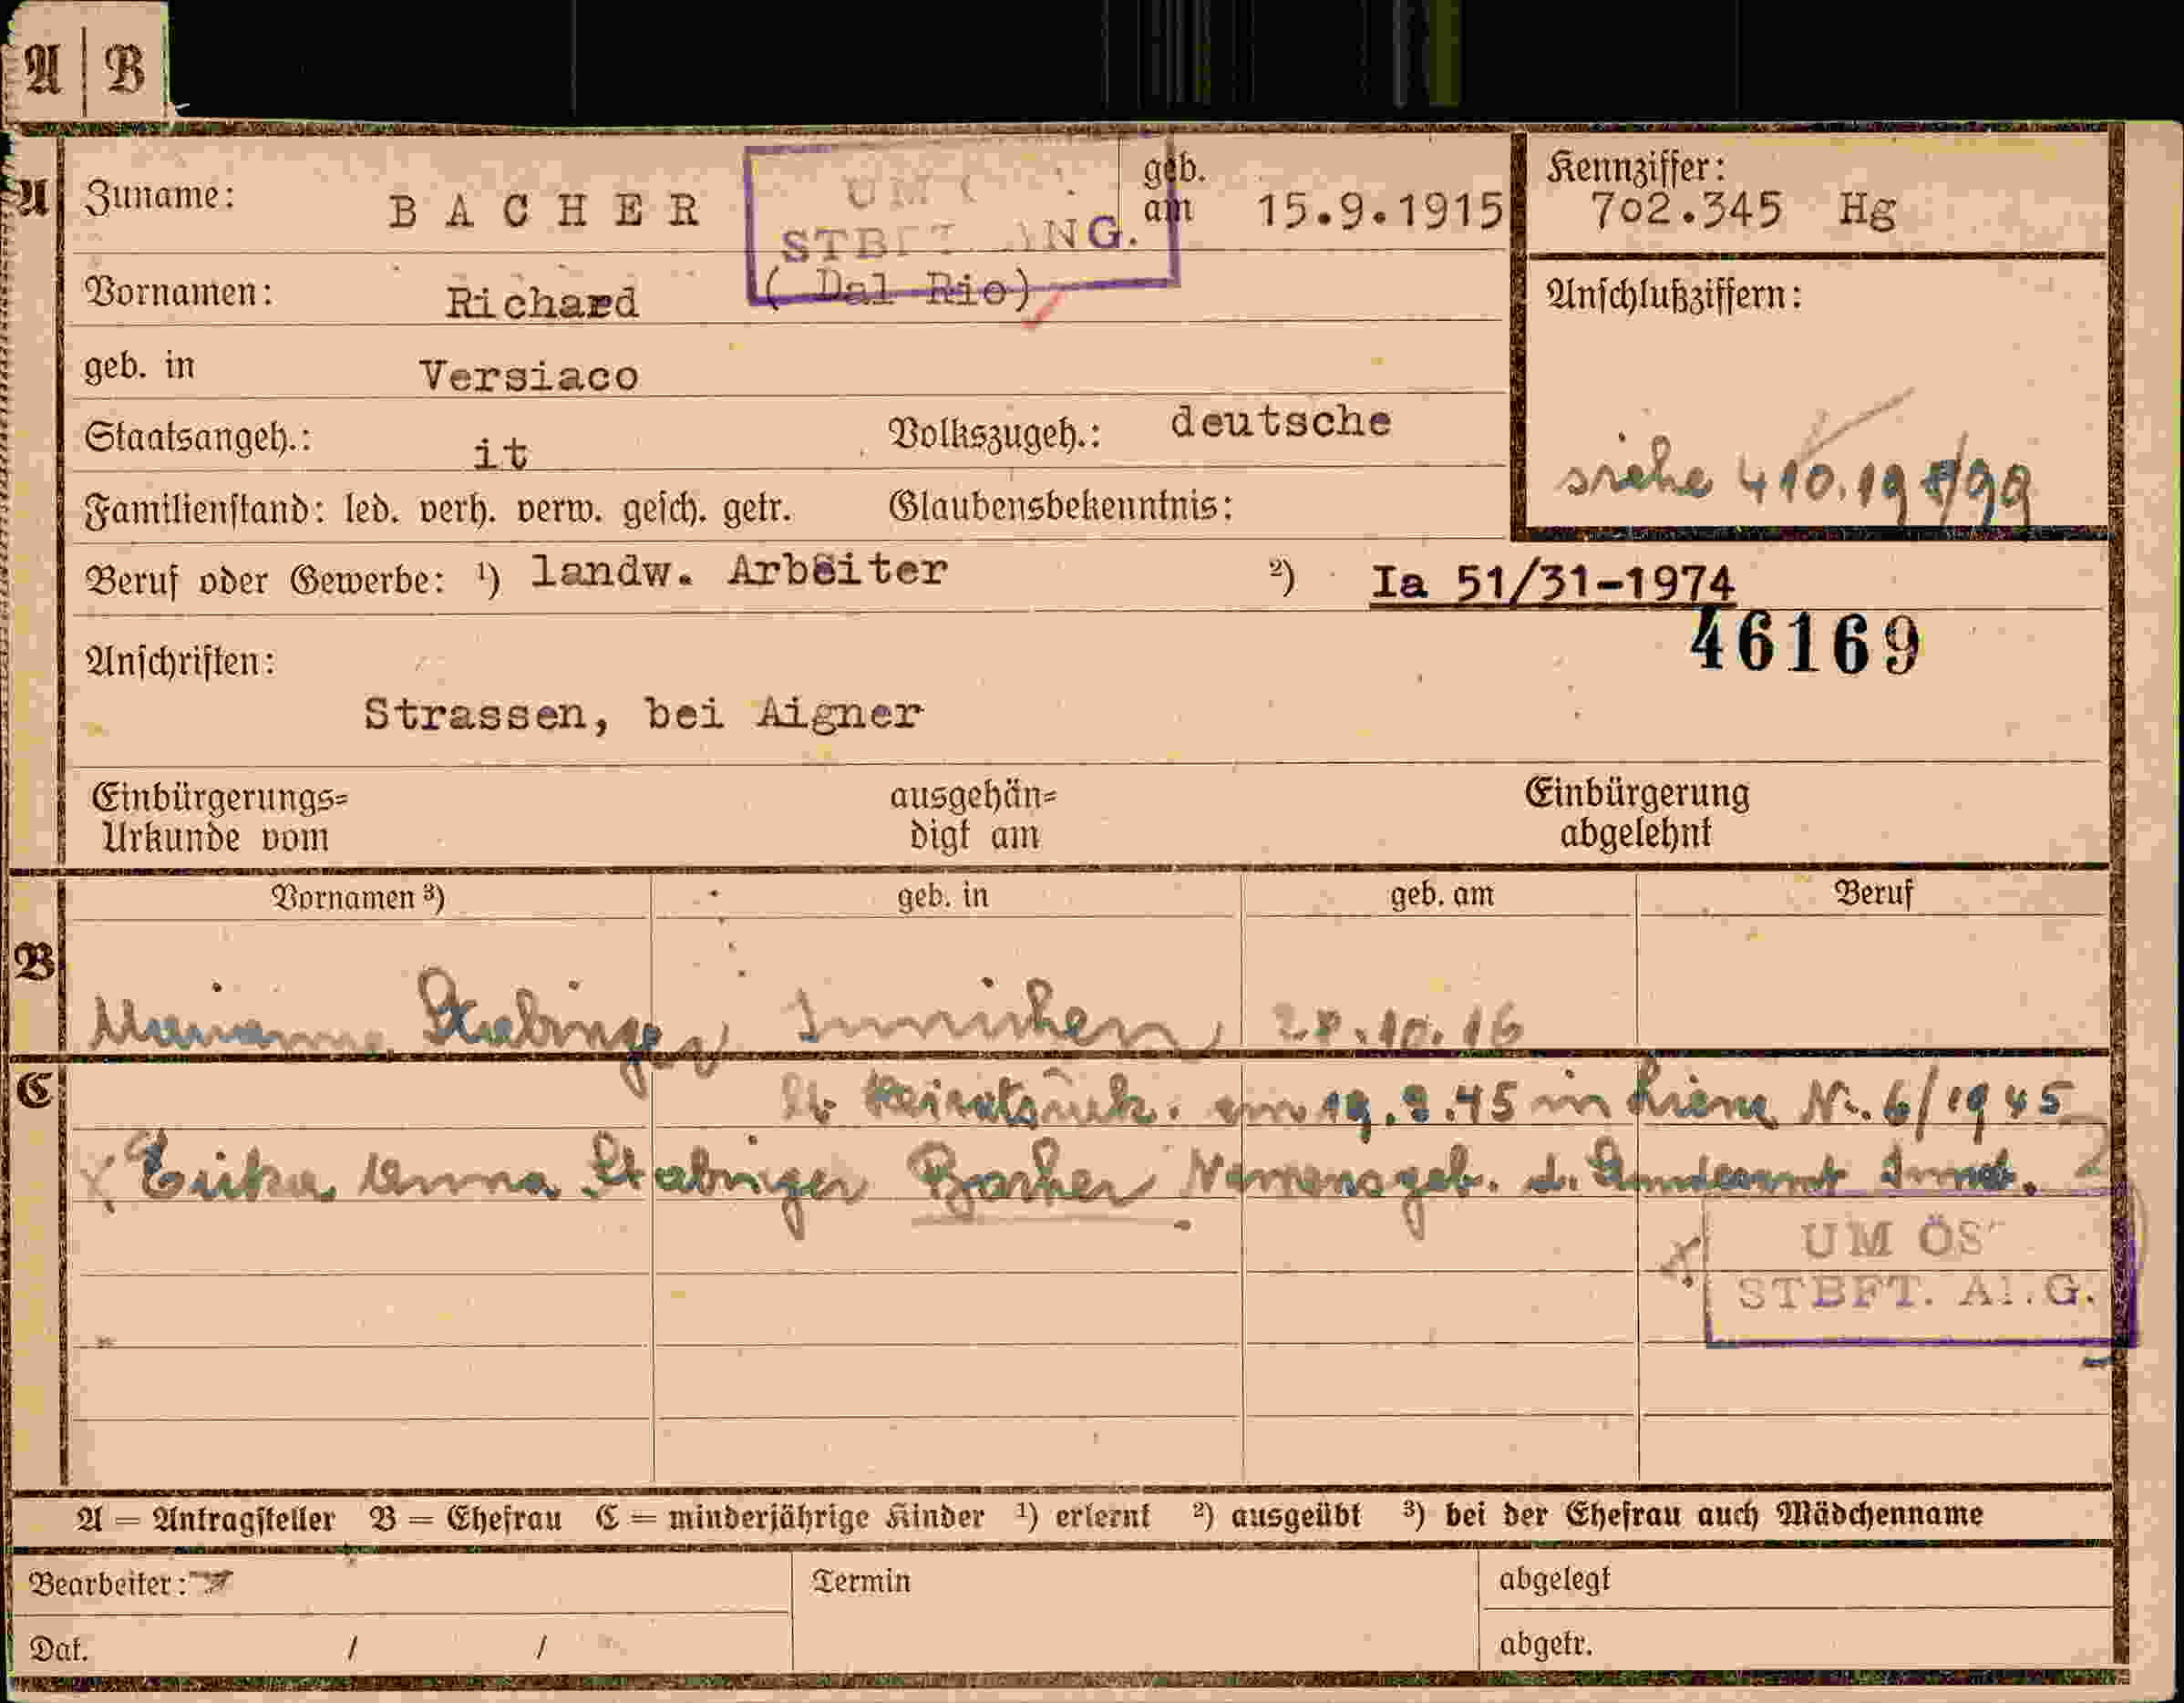 A | B
A Zuname: BACHER geb. am 15.9.1915 Kennziffer: 702.345 Hg
UM
STB NG.
Vornamen: Richard (Dal Rio) Anschlußziffern:
geb. in Versiaco
Staatsangeh.: it Volkszugeh.: deutsche
siehe 410.19
Familienstand: led. verh. verw. gesch. getr. Glaubensbekenntnis:
Beruf oder Gewerbe: ¹) landw. Arbeiter ²) Ia 51/31-1974
46169
Anschriften:
Strassen, bei Aigner
Einbürgerungs= ausgehän= Einbürgerung
Urkunde vom digt am abgelehnt
Vornamen ³) geb. in geb. am Beruf
B
Marianne Stabinger Innichen 10.16
C
lt. Heiratsurk. 45 in Lienz Nr. 6/1945
Erika Anna Stabinger Bacher Namensgeb. d.
UM ÖS
STBFT. G.
A = Antragsteller B = Ehefrau C = minderjährige Kinder ¹) erlernt ²) ausgeübt ³) bei der Ehefrau auch Mädchenname
Bearbeiter: Termin abgelegt
Dat. / / abgetr.